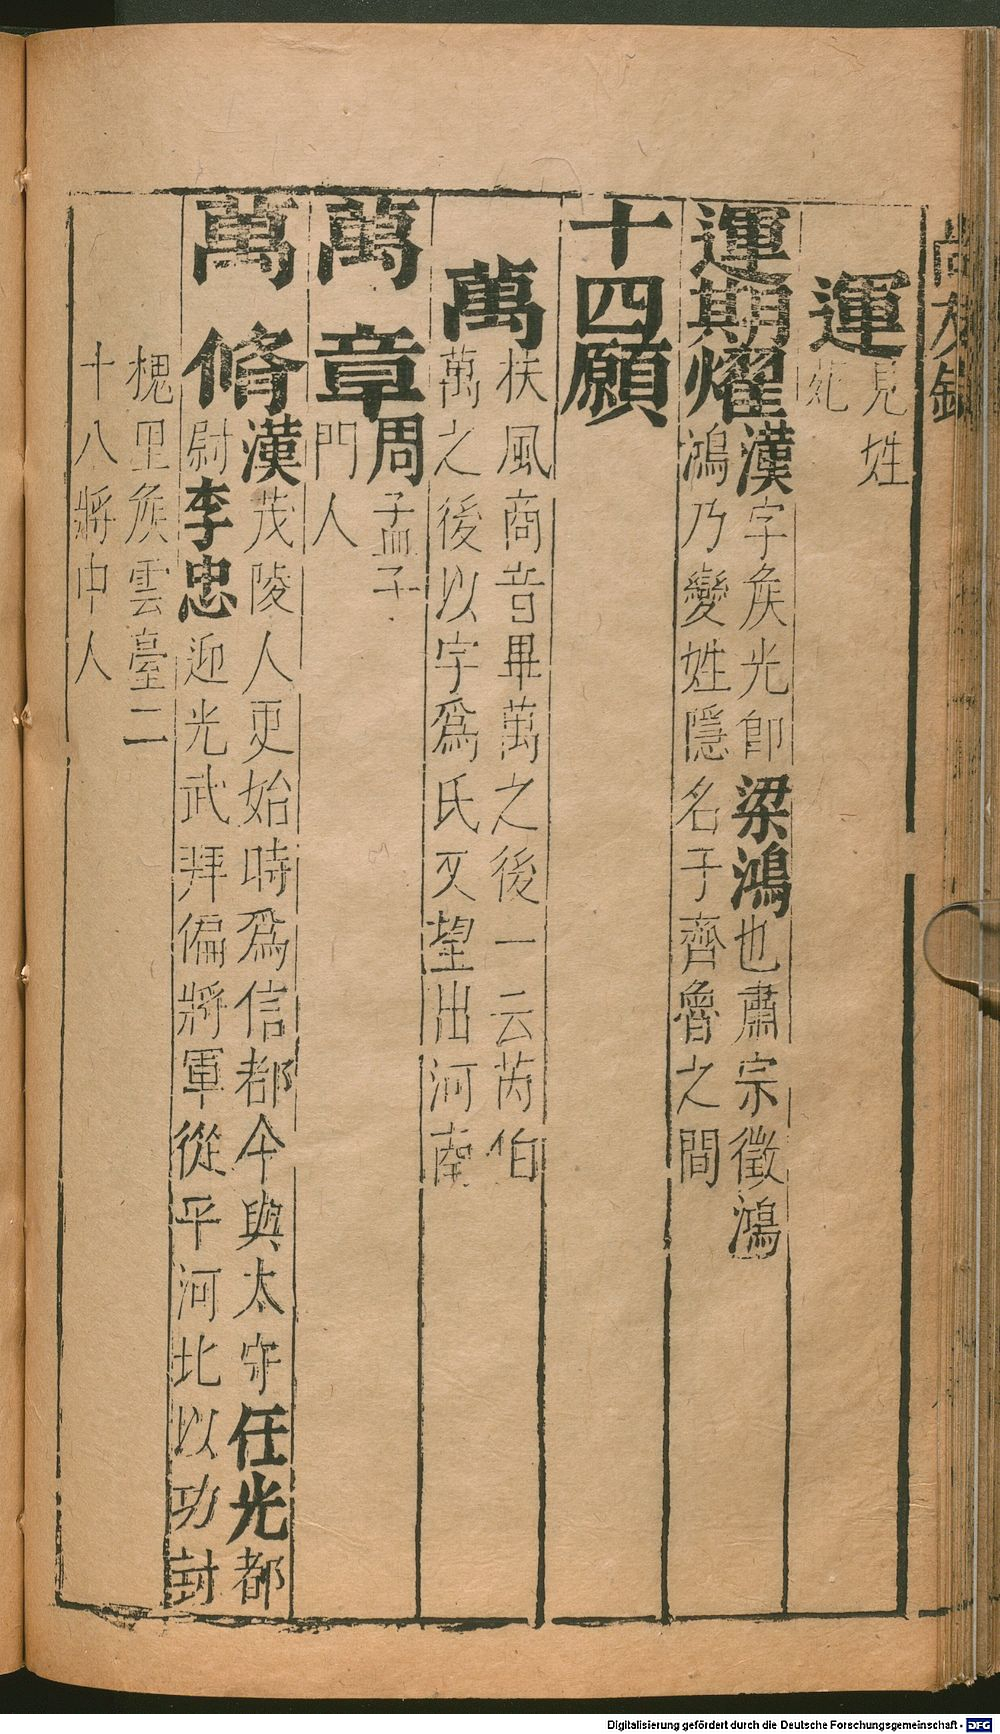 尚友錄
運
見姓
苑
運期燿
漢字矦光卽梁鴻也肅宗徵鴻
鴻乃變姓隱名子齊魯之間
十四願
萬
扶風商音畢萬之後一云芮伯
萬之後以字爲氏又望出河南
萬章
周孟子
門人
萬脩
漢茂陵人更始時爲信都令與太守任光都
尉李忠迎光武拜偏將軍從平河北以功封
槐里矦雲臺二
十八將中人
Digitalisierung gefördert durch die Deutsche Forschungsgemeinschaft - DFG